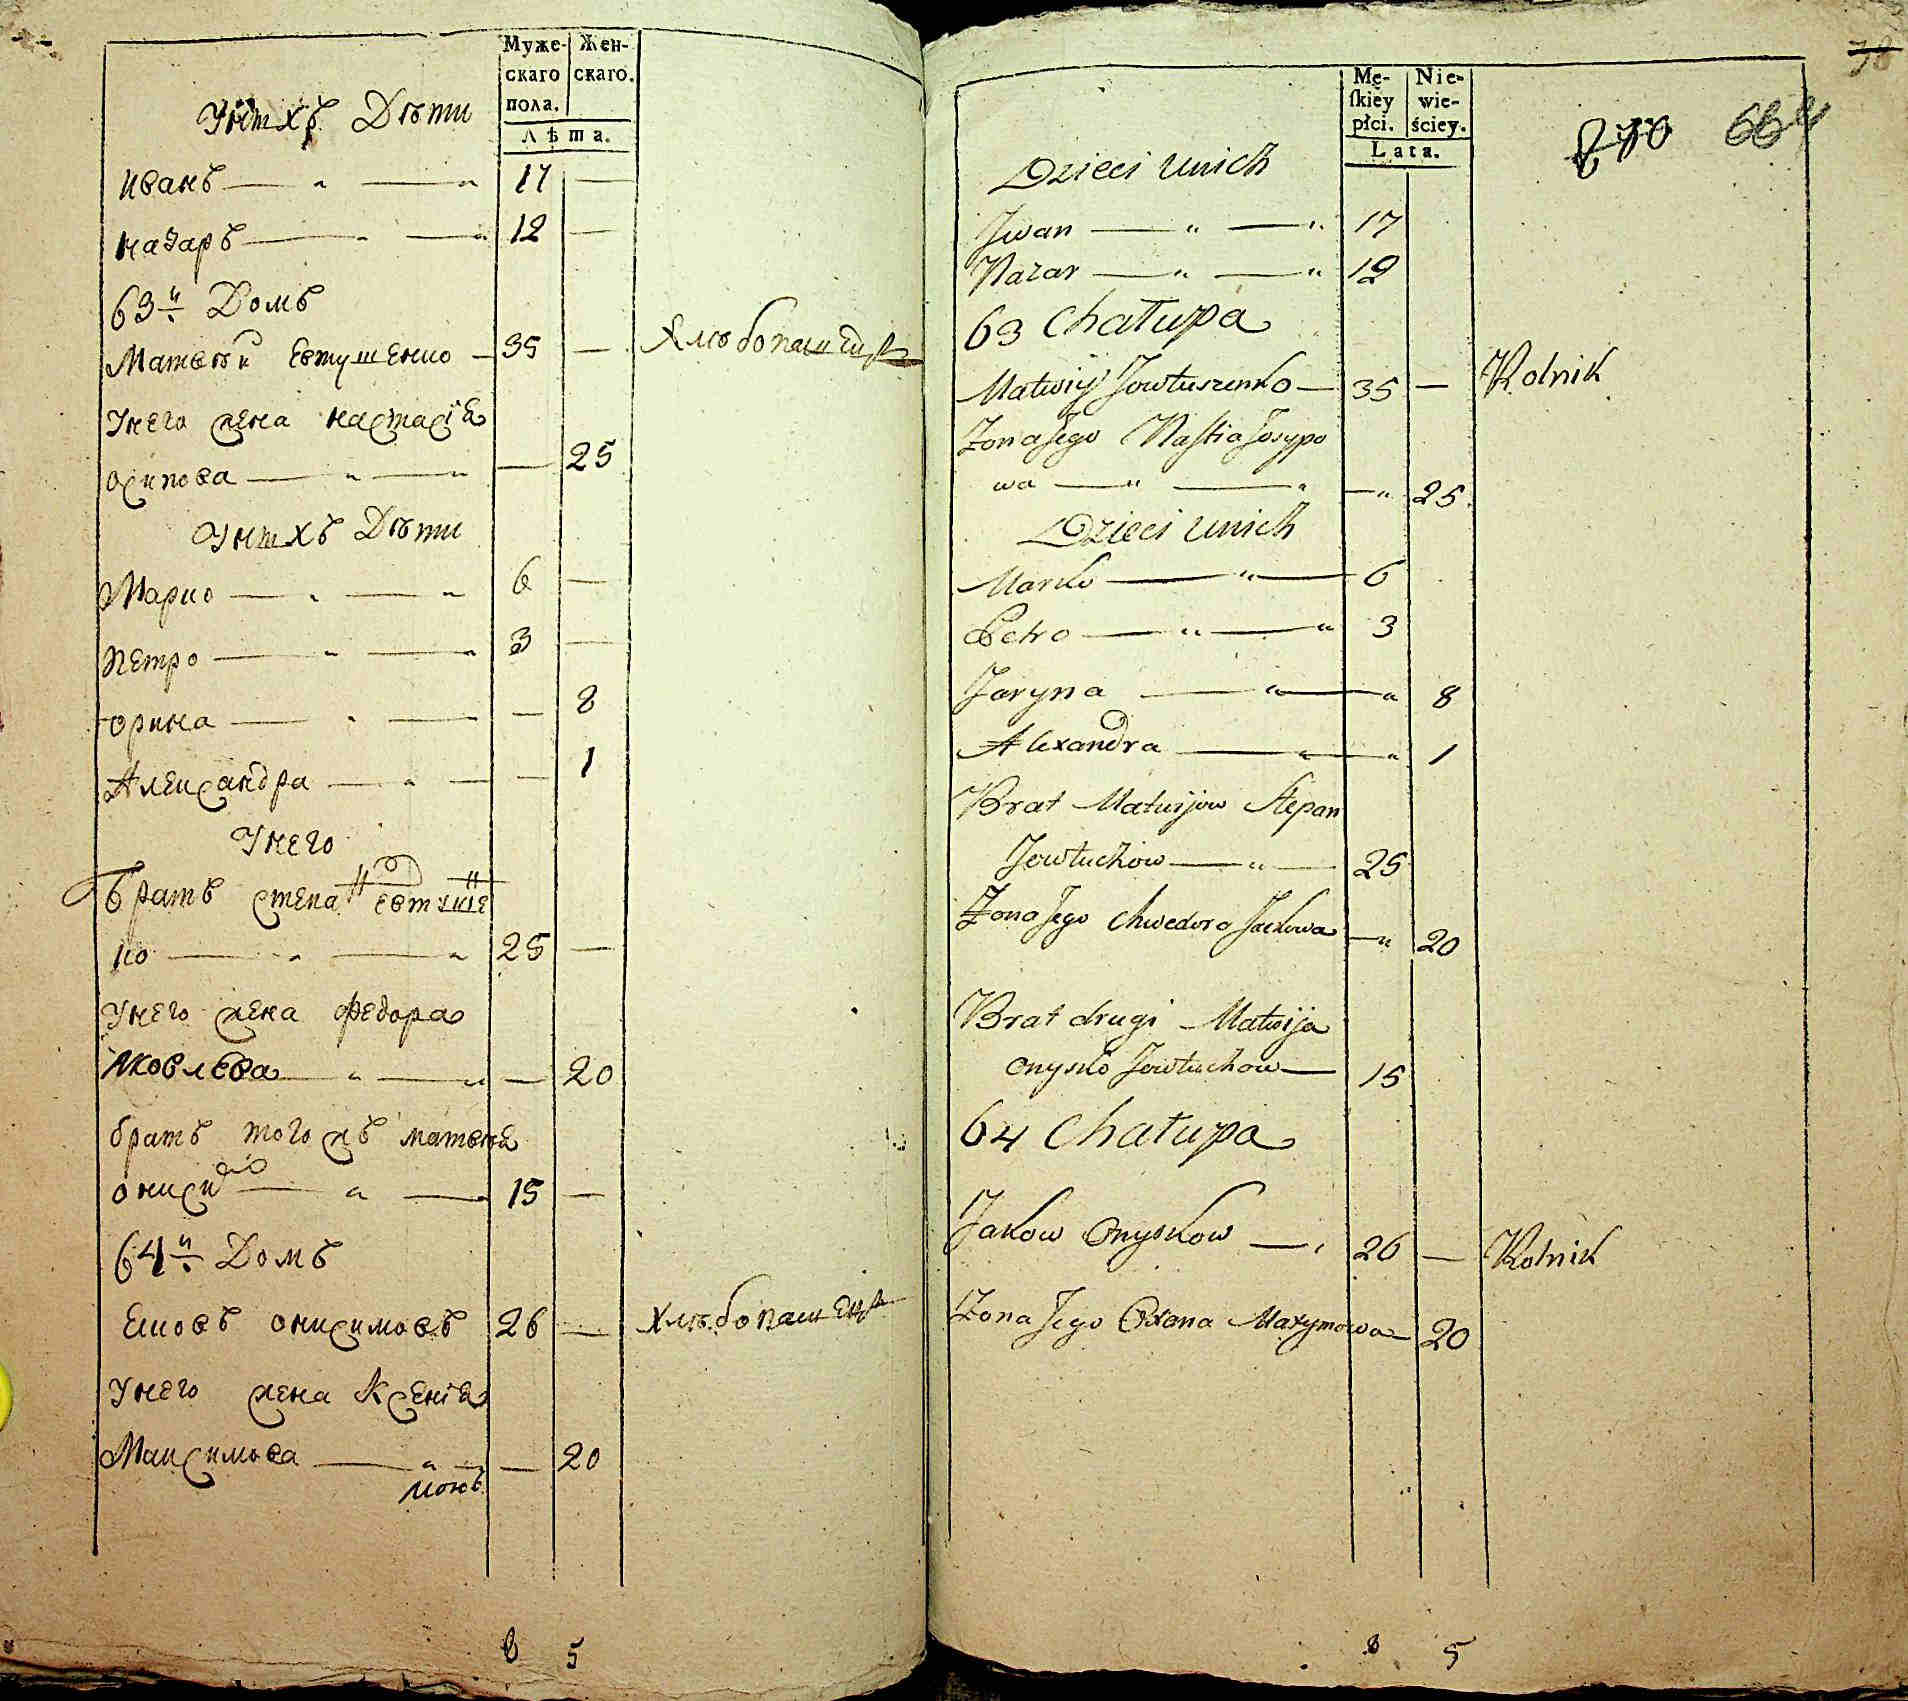 Муже- Жен-
скаго скаго.
пола.
Лѣта.
У нихъ Дѣти
иванъ — „ — „ 17 —
назаръ — „ — „ 12 —
63й Домъ
Матвѣй Евтушенко — 35 — Хлѣбопашецъ
У него жена настасiя
осипова — „ — „ — 25
У нихъ Дѣти
Марко — „ — „ 6 —
петро — „ — „ 3 —
орина — „ — — 8
Александра — „ — — 1
У него
братъ степан Евтуше
ко — „ — „ 25 —
У него жена федора
яковлева — „ — „ — 20
братъ того жъ матвея
ониско — „ — 15 —
64й Домъ
Яковъ онисимовъ 26 — Хлѣбопашецъ
У него жена Ксенiя
Максимова — „ — 20
8 5
78
Mę- Nie-
ſkiey wie-
płci. ściey.
Lata.
270 664
Dzieci unich
Jwan — „ — „ 17
Nazar — „ — „ 12
63 Chałupa
Matwiy Jowtuszenko — 35 — Rolnik
Żona Jego Nastia Josypo
wa — „ — „ — „ 25
Dzieci unich
Marko — „ — 6
Petro — „ — „ 3
Jaryna — „ — „ 8
Alexandra — „ — „ 1
Brat Matwijow Stepan
Jowtuchow — „ — 25
Żona Jego Chwedora Jackowa — „ 20
Brat drugi Matwija
Onysko Jowtuchow — 15
64 Chałupa
Jakow Onyskow — „ 26 — Rolnik
Żona Jego Oxana Maxymowa — 20
8 5